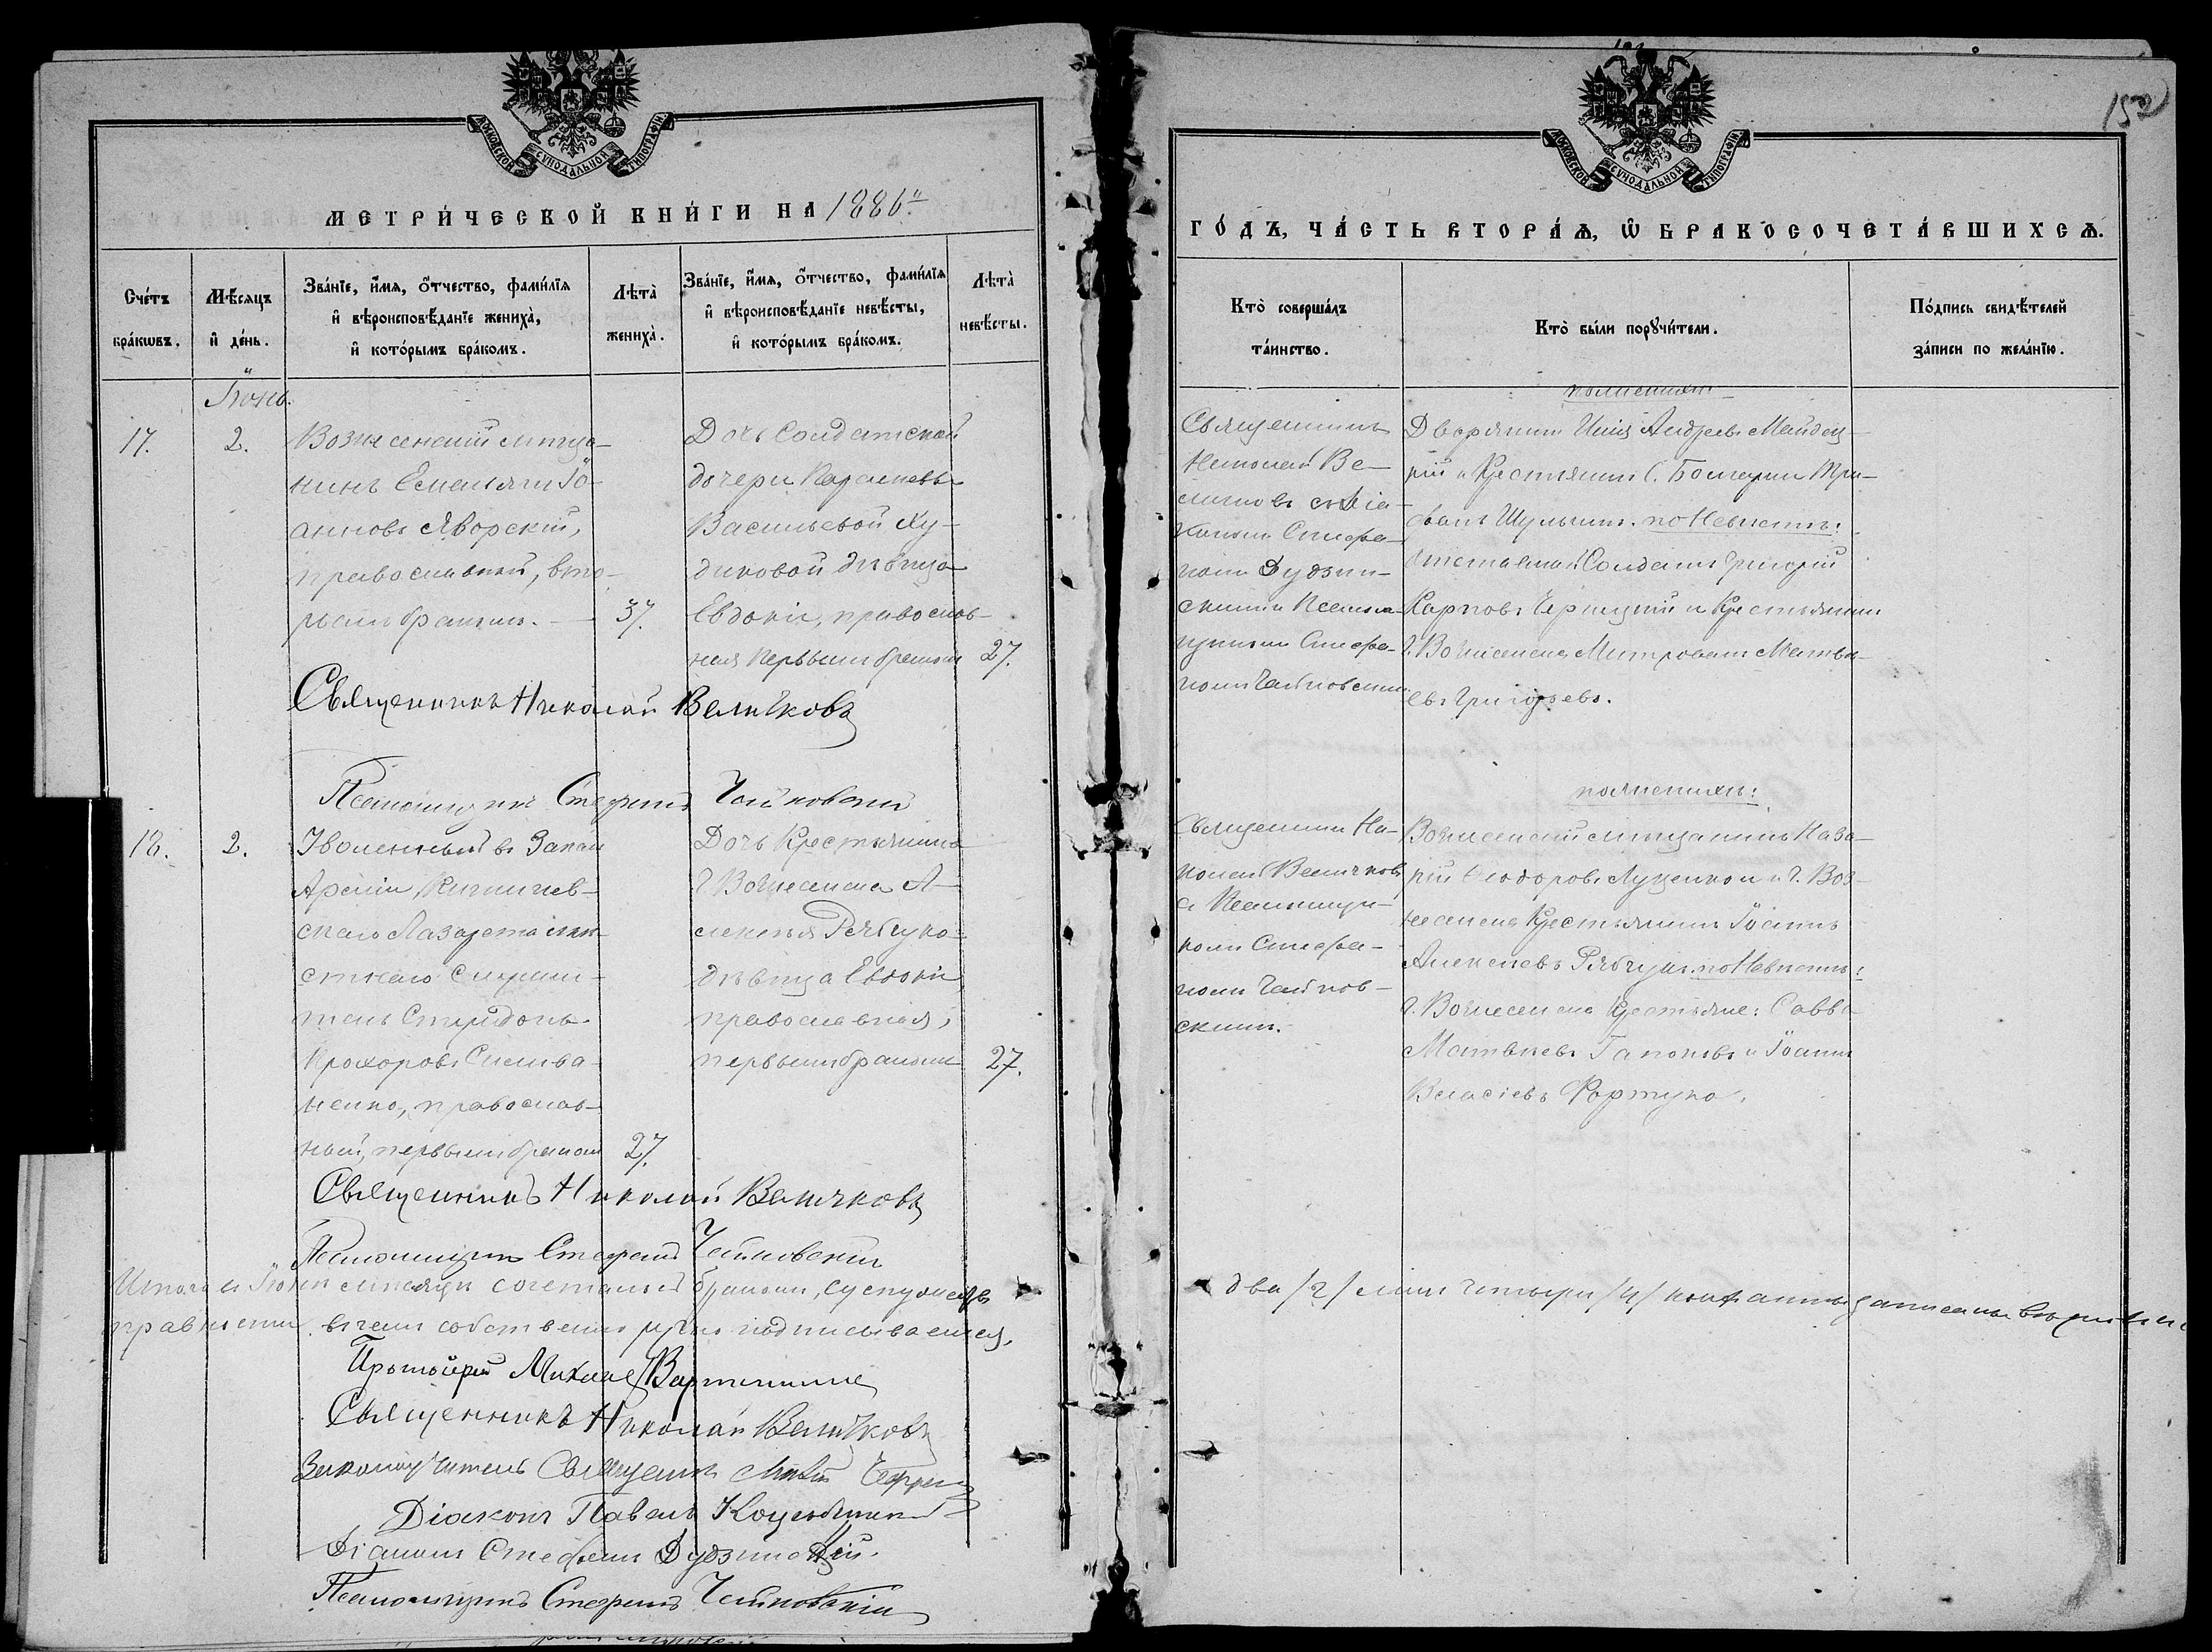 152
МОСКОВСКОЙ СѴНОДАЛЬНОЙ ТИПОГРАФІИ
МЕТРИ́ЧЕСКОЙ КНИ́ГИ НА 1886й
Сче́тъ бра́кѡвъ.
Мѣ́сяцъ и҆ де́нь.
Зва́нїе, и҆́мѧ, ѻ҆́тчество, фами́лїѧ
и҆ вѣроисповѣ́данїе жениха̀,
и҆ кото́рымъ бра́комъ.
Лѣта̀ жениха̀.
Зва́нїе, и҆́мѧ, ѻ҆́тчество, фами́лїѧ
и҆ вѣроисповѣ́данїе невѣ́сты,
и҆ кото́рымъ бра́комъ.
Лѣта̀ невѣ́сты.
17.
2.
Вознесенскій мѣща-
нинъ Емельянъ Іо-
анновъ Яворскій,
православный, вто-
рымъ бракомъ. —
37.
Дочь Солдатской
дочери Параскевы
Васильевой Ху-
диковой дѣвица
Евдокія, православ-
ная первымъ бракомъ
27.
Священникъ Николай Величковъ
Псаломщикъ Стефанъ Чайковскій
18.
2.
Уволенный въ Запасъ
Арміи, Кишинев-
скаго Лазарета мѣ-
стнаго служи-
тель Спиридонъ
Прохоровъ Силива-
ненко, православ-
ный, первымъ бракомъ
27.
Дочь Крестьянина
г. Вознесенска А-
лексѣя Рябчука
дѣвица Евдокія
православная,
первымъ бракомъ
27.
Священникъ Николай Величковъ
Псаломщикъ Стефанъ Чайковскій
Итого въ Іюнѣ мѣсяцѣ сочетанныхъ бракомъ, супружествъ
правильно въ чемъ собственно ручно подписываемся,
Протоіерей Михаилъ
Священникъ Николай Величковъ
Законоучитель Священникъ
Діаконъ Павелъ
Діаконъ Стефанъ Дудзинскій.
Псаломщикъ Стефанъ Чайковскій
МОСКОВСКОЙ СѴНОДАЛЬНОЙ ТИПОГРАФІИ
ГО́ДЪ, ЧА́СТЬ ВТОРА́Ѧ, Ѡ҆ БРАКОСОЧЕТА́ВШИХСѦ.
Кто̀ соверша́лъ
та́инство.
Кто̀ бы́ли порꙋчи́тели.
По́дпись свидѣ́телей
за́писи по жела́нїю.
Священникъ
Николай Ве-
личковъ съ Діа-
кономъ Стефа-
номъ Дудзин-
скимъ и Псалом-
щикомъ Стефа-
номъ Чайковскимъ
по женихѣ:
Дворянинъ Илія Андреевъ Майдец-
кій и Крестьянинъ С. Болгарки Три-
фонъ Шульгинъ. по Невѣстѣ:
Отставной Солдатъ Григорій
Карповъ Черницкій и Крестьянинъ
г. Вознесенска Митрофанъ Матвѣ-
евъ Григорьевъ.
Священникъ Ни-
колай Величковъ
съ Псаломщи-
комъ Стефа-
номъ Чайков-
скимъ.
по женихѣ:
Вознесенскій мѣщанинъ Наза-
рій Ѳеодоровъ Луценко и г. Воз-
несенска Крестьянинъ Іоаннъ
Алексѣевъ Рябчукъ. по Невѣстѣ:
г. Вознесенска Крестьяне: Савва
Матвѣевъ Гапоновъ и Іоаннъ
Власіевъ Фортуна.
два /2/ лицъ четыри /4/ записаны вѣрно и